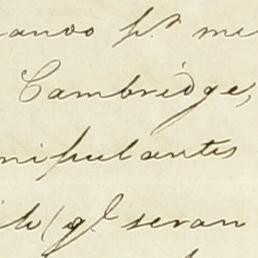 ando pr. me
Cambridge,
nipulantes
ile (ql. seran